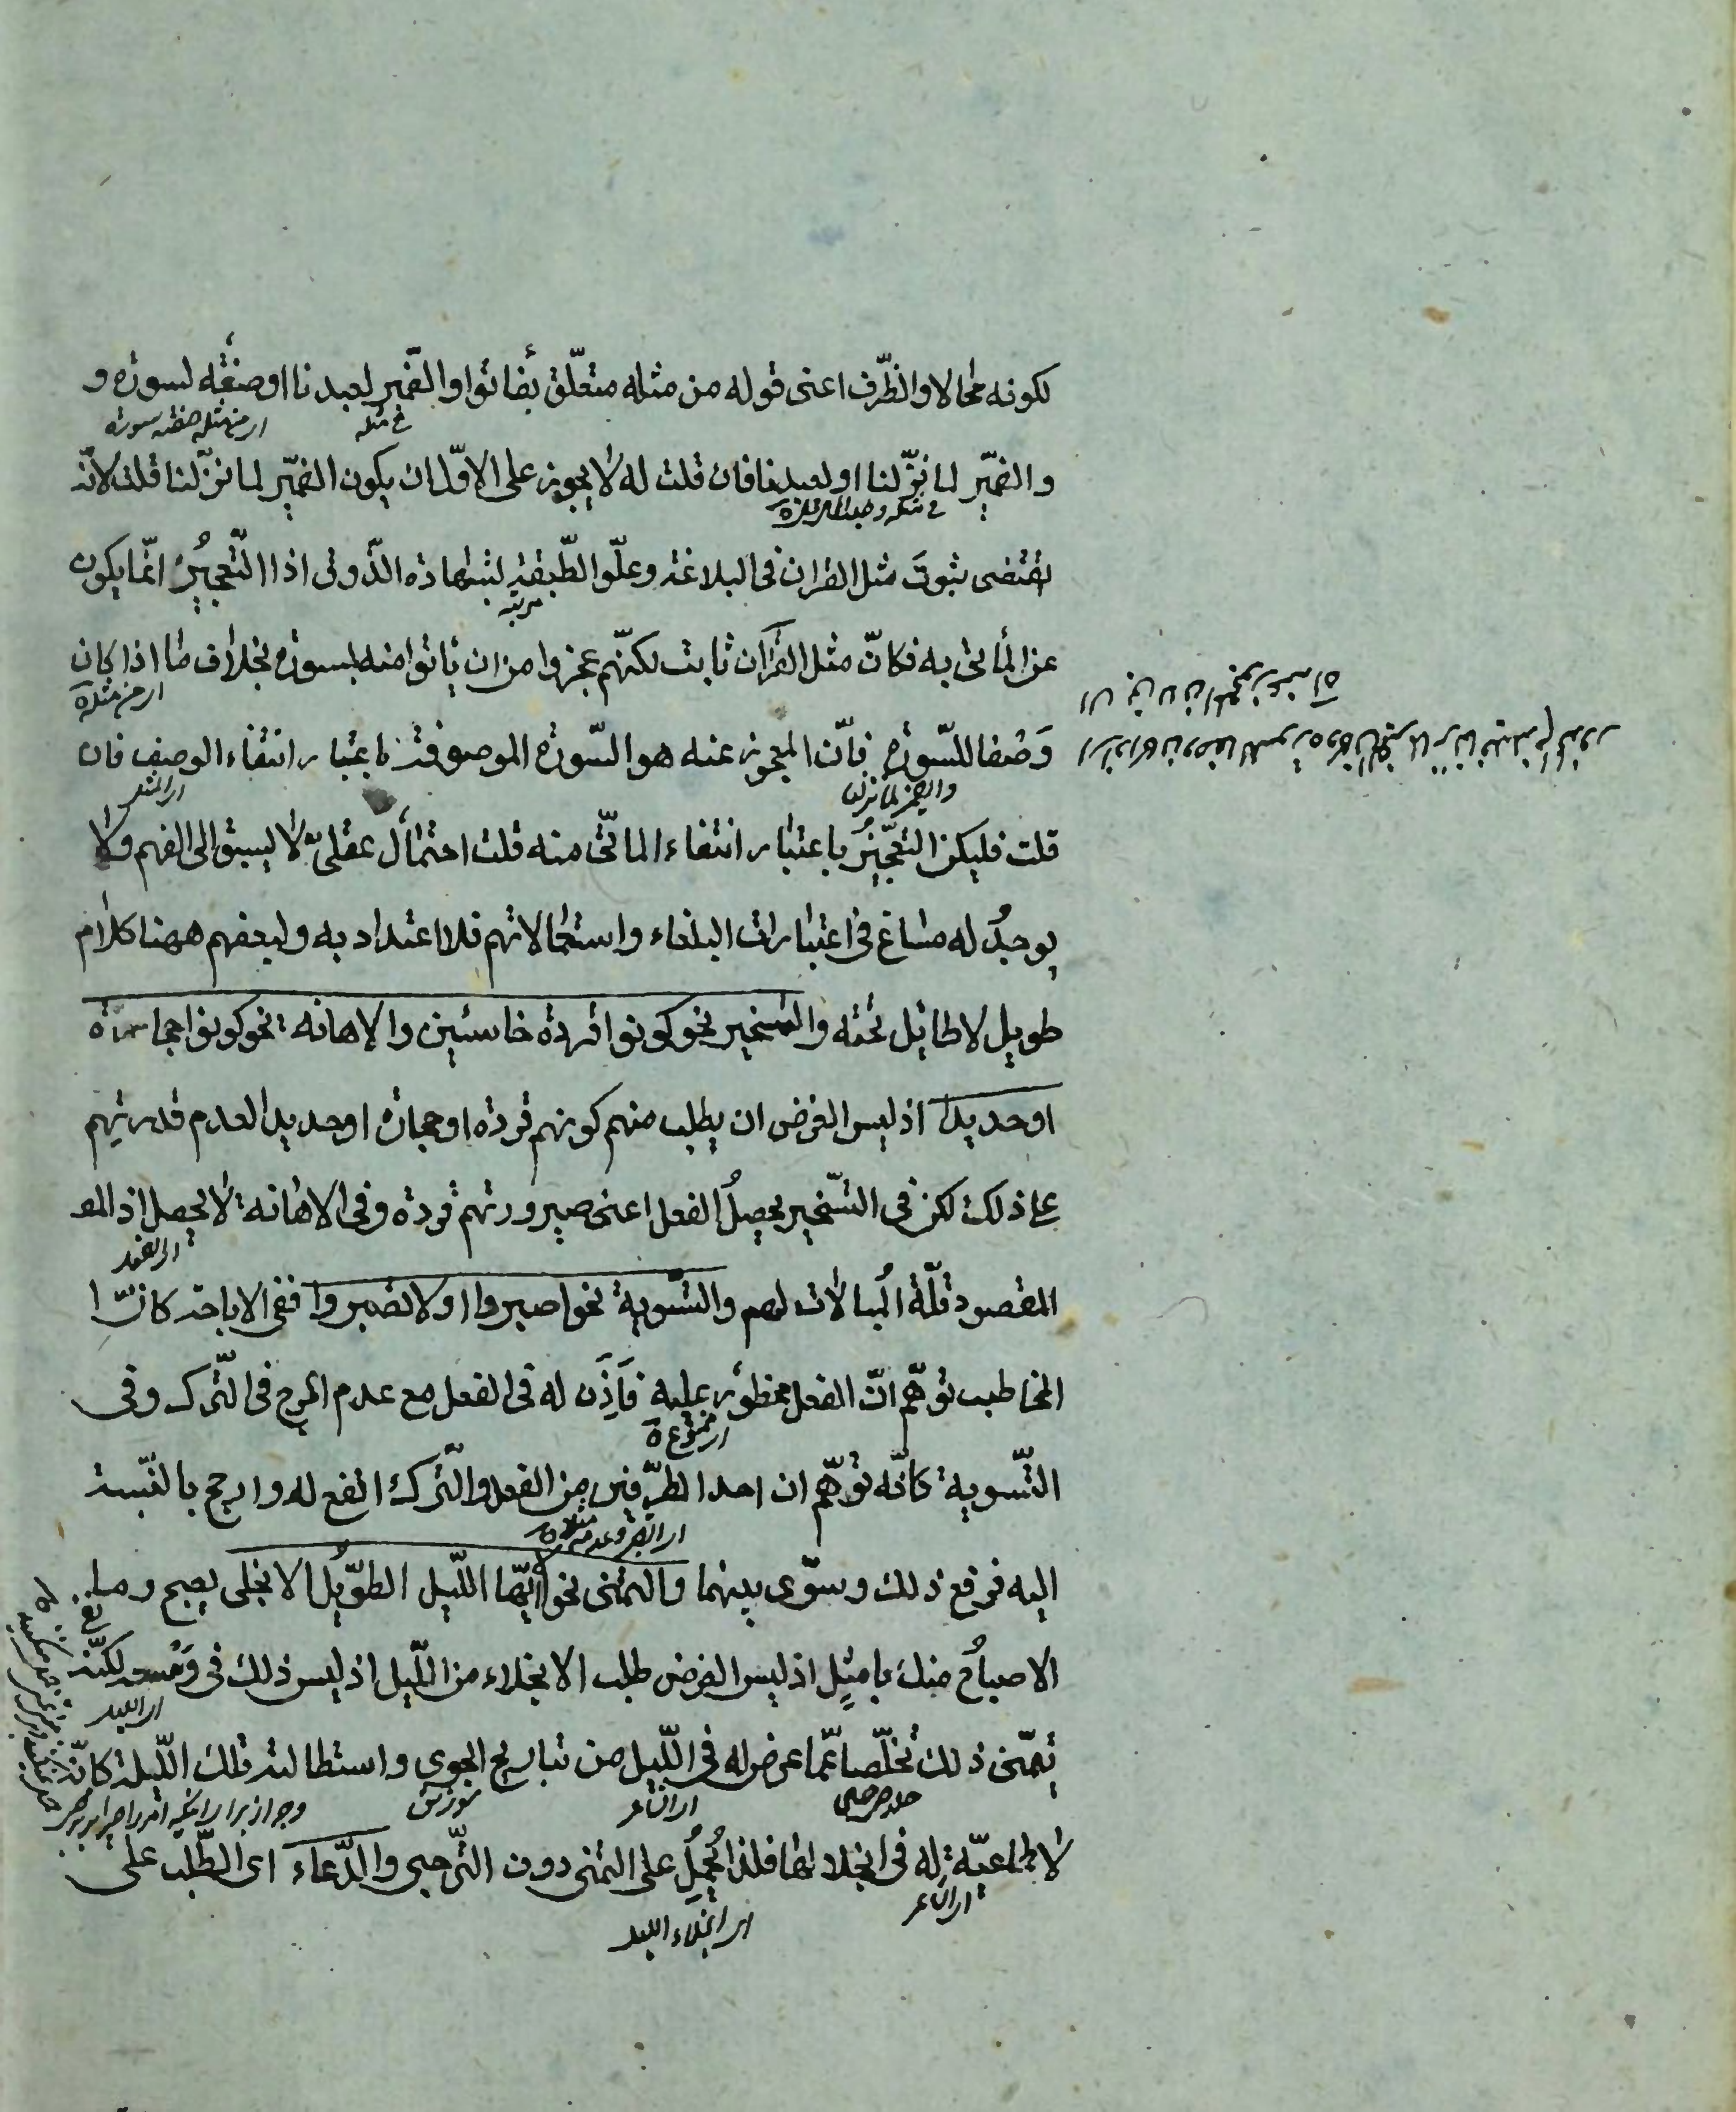 لكونه محالا والظّرف اعنى قوله من مثله متعلّق بفأتوا والضّمير لعبدنا او صفة لسورة و
والضّمير لما نزّلنا او لعبدنا فان قلت لم لا يجوز على الاوّل ان يكون الضّمير لما نزّلنا قلت لانّه
يقتضى ثبوت مثل القران فى البلاغة وعلوّ الطّبقة بشهادة الذّوق اذ التّعجيز انّما يكون
عن المأتى به فكانّ مثل القرآن ثابت لكنّهم عجزوا من ان يأتوا منه بسورة بخلاف ما اذا كان
وَصْفا للسّورة فانّ المعجوز عنه هو السّورة الموصوفة باعتبار انتفاء الوصف فان
قلت فليكن التّعجيز باعتبار انتفاء المأتى منه قلت احتمال عقلىّ لا يسبق الى الفهم ولا
يوجدُ له مساغ فى اعتبارات البلغاء واستعمالاتهم فلا اعتداد به ولبعضهم ههنا كلام
طويل لا طائل تحته والتسخير نحو كونوا قردة خاسئين والاهانة نحو كونوا حجارة
او حديدا اذ ليس الغرض ان يطلب منهم كونهم قردة او حجارة او حديدا لعدم قدرتهم
على ذلك لكن فى التّسخير يحصلُ الفعل اعنى صيرورتهم قردة وفى الاهانة لا يحصل اذ المقـ
المقصود قلّة المبالات لهم والتّسوية نحو اصبروا او لا تصبروا ففى الاباحة كانّ ا
المخاطب توهّم انّ الفعل محظور عليه فَاَذِنَ له فى الفعل مع عدم الحرج فى التّرك وفى
التّسوية كانّه توهّم ان احد الطّرفين من الفعل والتّرك انفع له وارجح بالنّسبة
اليه فرفع ذلك وسوّى بينهما والتمنى نحو الا ايّها اللّيل الطّويل الا انجلى بصبح وما
الاصباحُ منك بامثل اذ ليس الغرض طلب الانجلاء من اللّيل اذ ليس ذلك فى وسعه لكنّه
يتمنّى ذلك تخلّصا عمّا عرض له فى اللّيل من تباريح الجوى واستطالة تلك اللّيلة كانّه
لا طماعيّة له فى انجلائها فلذا يُحملُ على التمنى دون التّرجى والدّعاء اى الطّلب على
فى مثله
اى من مثله صفة سورة
مرتبه
اى من مثله
والضمير لما نزلنا
اى ممنوع
اى الليل
اى الشاعر
سوزش
اى الشاعر
اى انجلاء الليل